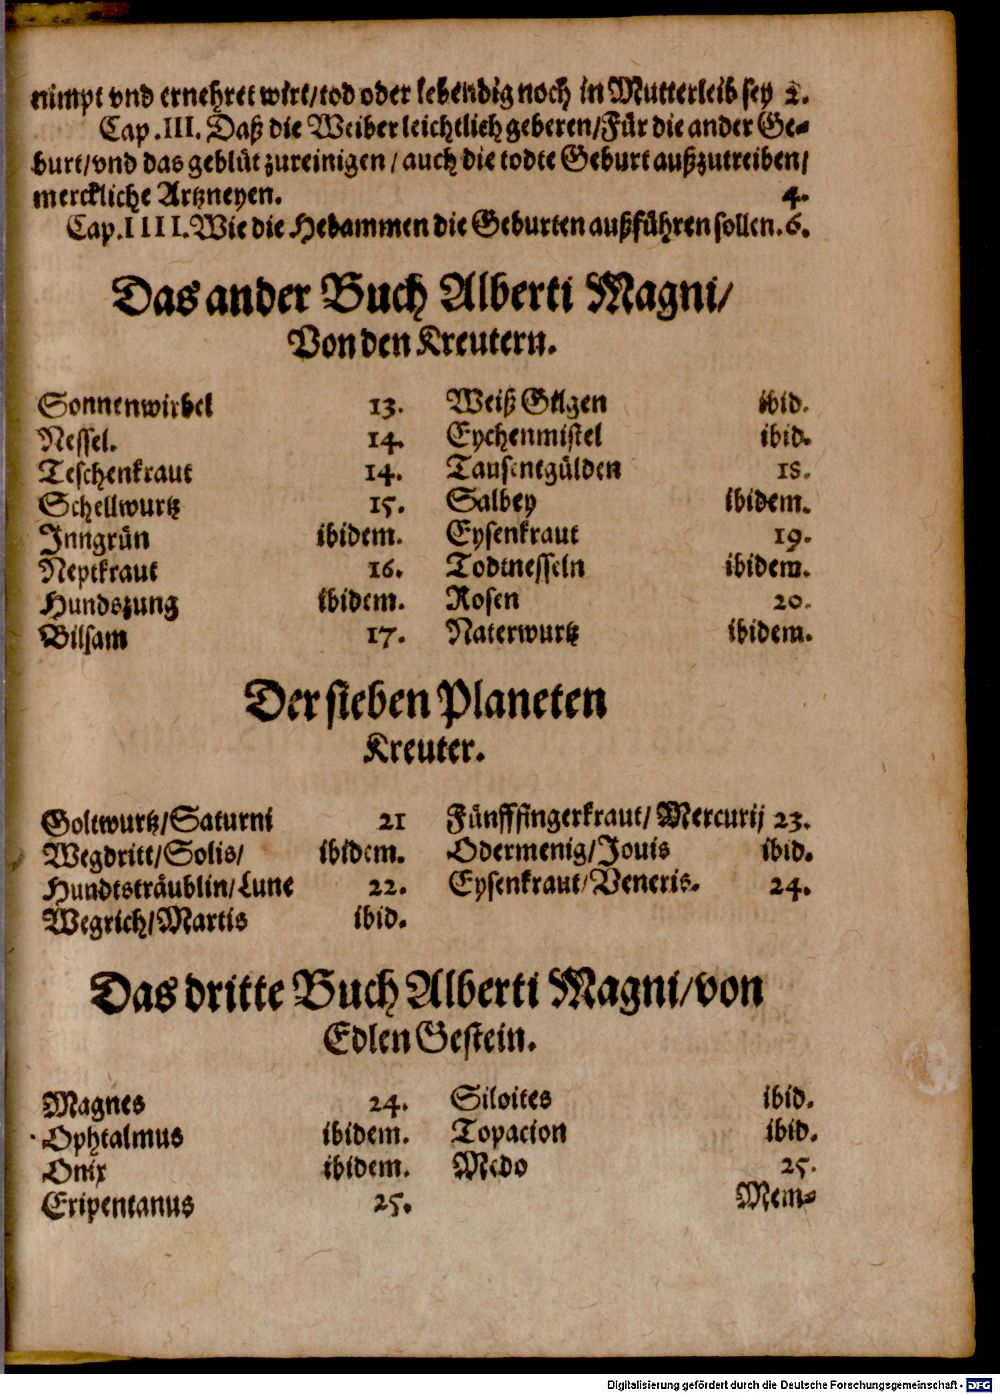 nimpt vnd ernehret wirt/tod oder lebendig noch in Mutterleib sey 2.
Cap.III. Daß die Weiber leichtlich geberen/Für die ander Ge-
burt/vnd das geblüt zureinigen/auch die todte Geburt außzutreiben/
merckliche Artzneyen. 4.
Cap.IIII. Wie die Hebammen die Geburten außführen sollen. 6.
Das ander Buch Alberti Magni/
Von den Kreutern.
Sonnenwirbel 13.
Nessel. 14.
Teschenkraut 14.
Schellwurtz 15.
Inngrün ibidem.
Neptkraut 16.
Hundszung ibidem.
Bilsam 17.
Weiß Gilgen ibid.
Eychenmistel ibid.
Tausentgülden 18.
Salbey ibidem.
Eysenkraut 19.
Todtnesseln ibidem.
Rosen 20.
Naterwurtz ibidem.
Der sieben Planeten
Kreuter.
Goltwurtz/Saturni 21
Wegdritt/Solis/ ibidem.
Hundtsträublin/Lune 22.
Wegrich/Martis ibid.
Fünfffingerkraut/Mercurij 23.
Odermenig/Jouis ibid.
Eysenkraut/Veneris. 24.
Das dritte Buch Alberti Magni/von
Edlen Gestein.
Magnes 24.
Ophtalmus ibidem.
Onix ibidem.
Eripentanus 25.
Siloites ibid.
Topacion ibid.
Medo 25.
Mem-
Digitalisierung gefördert durch die Deutsche Forschungsgemeinschaft - DFG